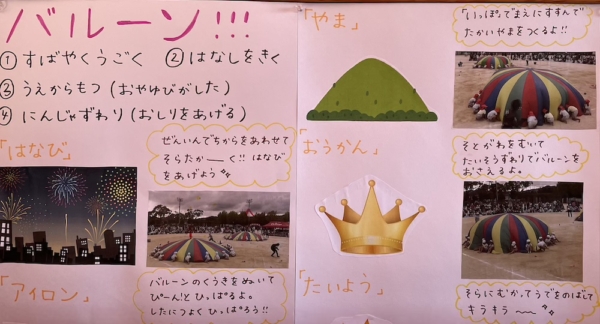 バルーン!!!
①すばやくうごく ②はなしをきく
③うえからもつ(おやゆびがした)
④にんじゃずわり(おしりをあげる)
「はなび」
ぜんいんでちからをあわせて
そらたかーく!!はなび
をあげよう
「アイロン」
バルーンのくうきをぬいて
ぴーん!とひっぱるよ。
したにつよくひっぱろう!!
「やま」
「いっぽ」でまえにすすんで
たかいやまをつくるよ!!
「おうかん」
そとがわをむいて
たいそうずわりでバルーンを
おさえるよ。
「たいよう」
そらにむかってうでをのばして
キラキラ〜〜